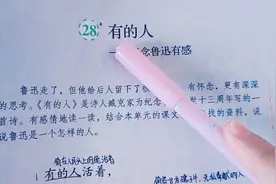 28
有的人
念鲁迅有感
鲁迅走了，但他给后人留下了
有怀念，更有深深
的思考。《有的人》是诗人臧克家为纪念
世十三周年写的一
首诗。有感情地读一读，结合本单元的课文
找的资料，说
说鲁迅是一个怎样的人。
有的人活着，